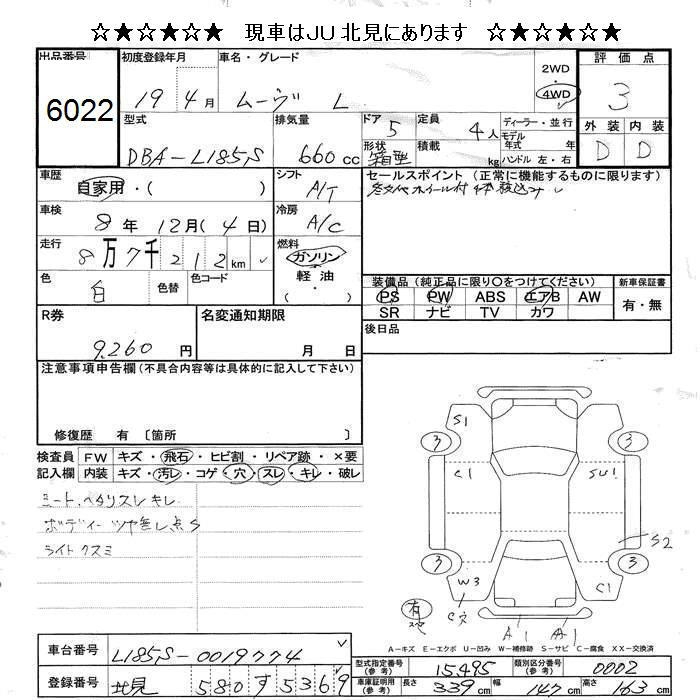 ☆★☆★☆★ 現車はJU北見にあります ☆★☆★☆★
出品番号 初度登録年月 車名・グレード 評価点
6022 19 4月 ムーヴ L 2WD 4WD 3
型式 排気量 ドア 5 定員 4人 ディーラー・並行 外装 内装
DBA-L185S 660cc 形状 箱型 積載 kg モデル年式 年 ハンドル 左・右 D D
車歴 シフト セールスポイント (正常に機能するものに限ります)
自家用・( ) A/T
車検 冷房
8年 12月(4日) A/C
走行 燃料
8万7千212km ガソリン・軽油・( )
色 色替 色コード 装備品(純正品に限り○をつけてください) 新車保証書
白 PS PW ABS エアB AW 有・無
SR ナビ TV カワ
R券 名変通知期限 後日品
9,260円 月 日
注意事項申告欄(不具合内容等は具体的に記入して下さい)
修復歴 有〔箇所 〕
検査員 FW キズ・飛石・ヒビ割・リペア跡・×要
記入欄 内装 キズ・汚レ・コゲ・穴・スレ・キレ・破レ
シート、ヘタリスレキレ
ボディー ツヤ無し点S
ライトクスミ
S1
3 3
C1 SU1
3 3
S2
W3 C1
有
C穴 A1 A1
A-キズ E-エクボ U-凹み W-補修跡 S-サビ C-腐食 XX-交換済
車台番号 L185S-0019774
型式指定番号(参考) 15495 類別区分番号(参考) 0002
登録番号 北見 580 す 5369
車庫証明用(参考) 長さ 339cm 幅 147cm 高さ 163cm